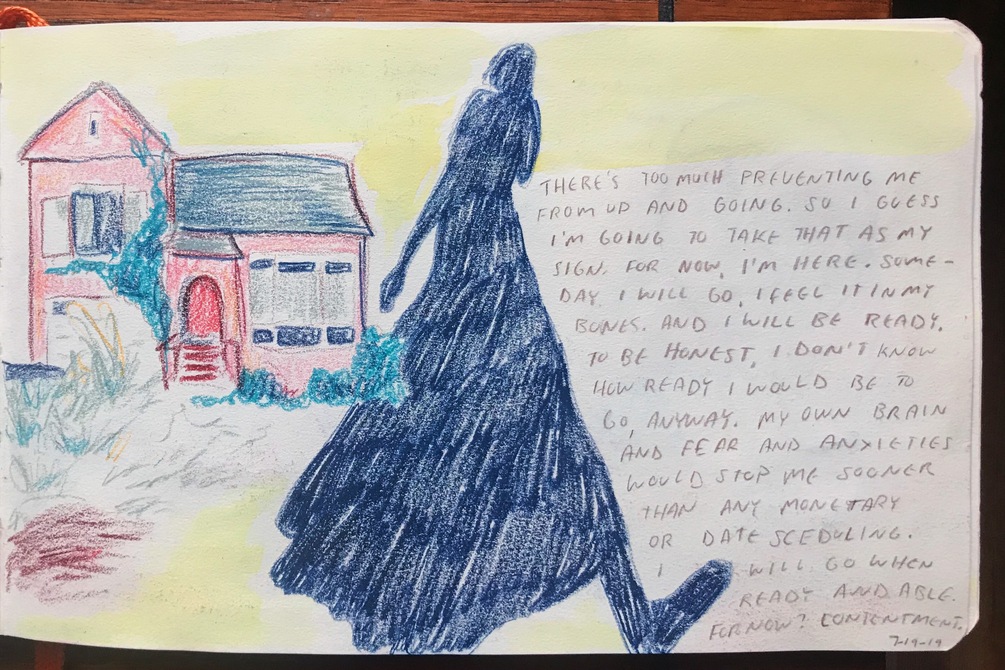 THERE'S TOO MUCH PREVENTING ME
FROM UP AND GOING. SO I GUESS
I'M GOING TO TAKE THAT AS MY
SIGN. FOR NOW, I'M HERE. SOME-
DAY, I WILL GO, I FEEL IT IN MY
BONES. AND I WILL BE READY.
TO BE HONEST, I DON'T KNOW
HOW READY I WOULD BE TO
GO, ANYWAY. MY OWN BRAIN
AND FEAR AND ANXIETIES
WOULD STOP ME SOONER
THAN ANY MONETARY
OR DATE SCEDULING.
I WILL GO WHEN
READY AND ABLE.
FOR NOW? CONTENTMENT.
7-19-19